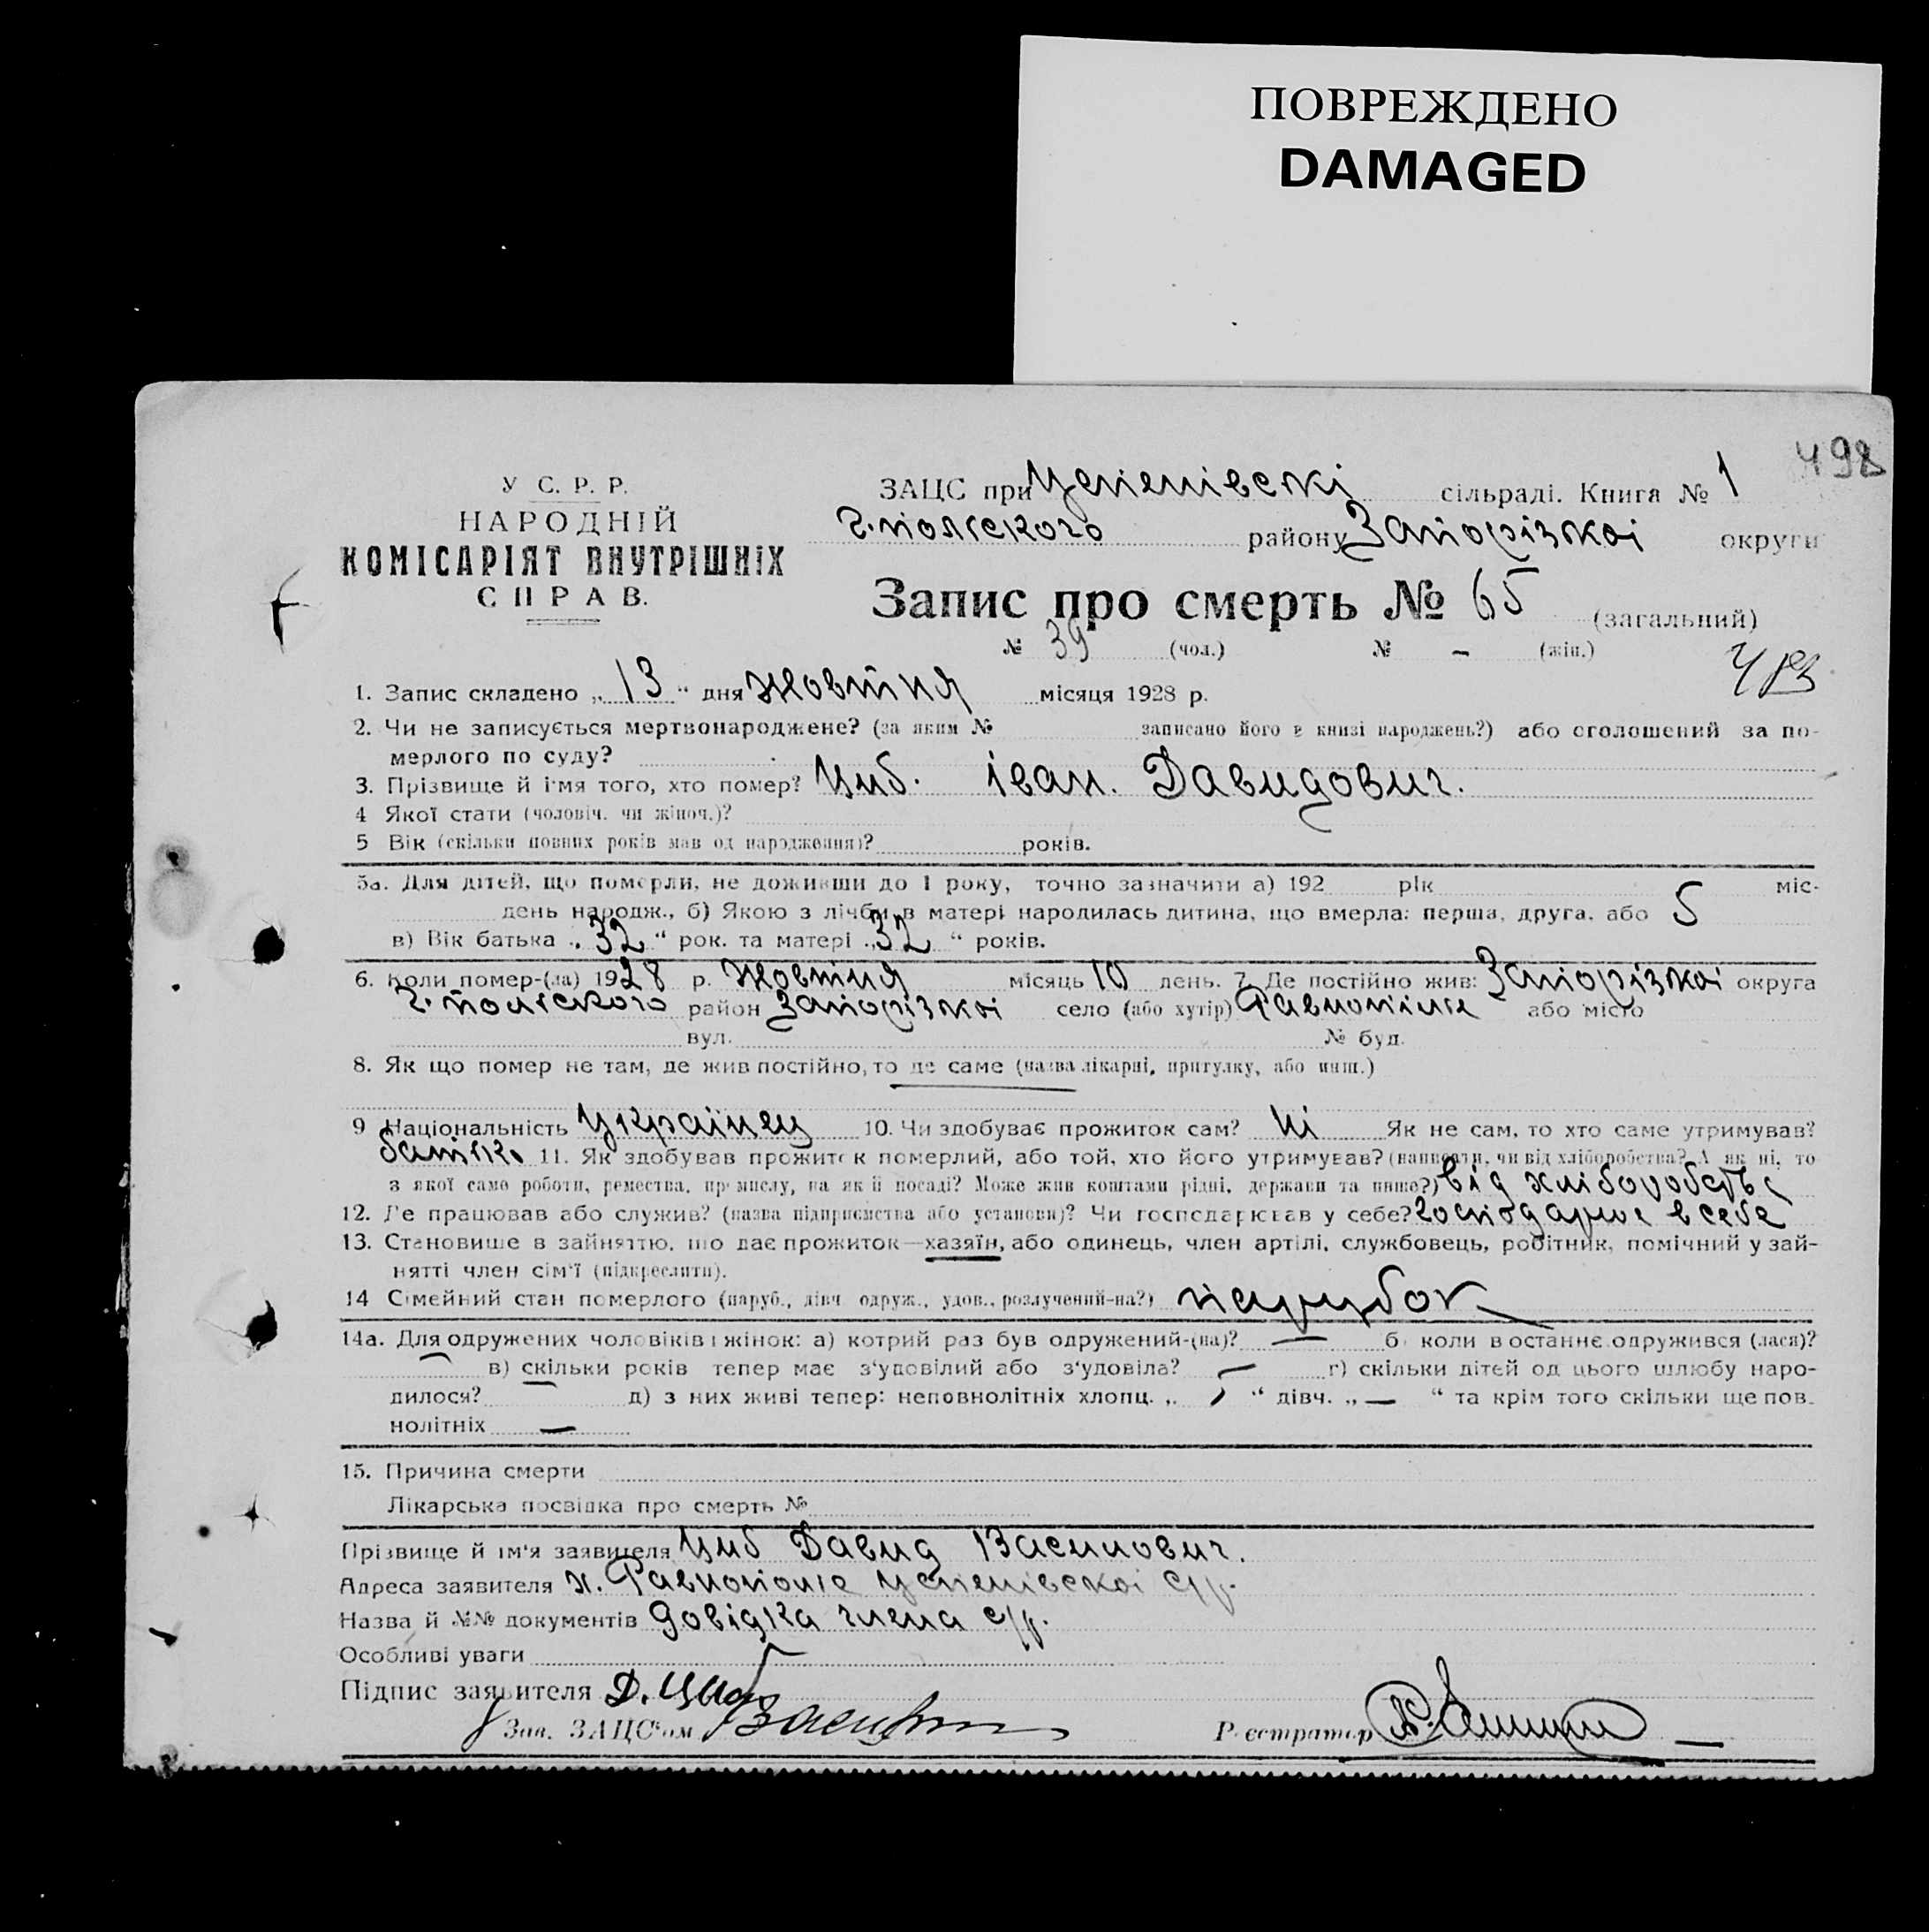 ПОВРЕЖДЕНО
DAMAGED
498
У С. Р. Р.
НАРОДНІЙ
КОМІСАРІЯТ ВНУТРІШНІХ
СПРАВ.
ЗАЦС при Успенівскі сільраді. Книга № 1
г.польского району Запорізкоі округи
Запис про смерть № 65 (загальний)
№ 39 (чол.) № – (жін.)
1. Запис складено „ 13 “ дня Жовтня місяця 1928 р.
2. Чи не записується мертвонароджене? (за яким № записано його в книзі народжень?) або оголошений за по-
мерлого по суду?
3. Прізвище й ім'я того, хто помер? Циб. іван. Давидович.
4 Якої статі (чоловіч. чи жіноч.)?
5 Вік (скільки повних років мав од народження)? років.
5а. Для дітей, що померли, не доживши до 1 року, точно зазначити а) 192 рік міс-
день народж., б) Якою з лічби в матері народилась дитина, що вмерла: перша, друга, або 5
в) Вік батька „ 32 “ рок. та матері „ 32 “ років.
6. Коли помер-(ла) 1928 р. Жовтня місяць 10 день. 7. Де постійно жив: Запорізкоі округа
г. польского район Запорізкоі село (або хутір) або місто
вул. № буд.
8. Як що помер не там, де жив постійно, то де саме (назва лікарні, притулку, або инш.)
9 Національність Украінец 10. Чи здобуває прожиток сам? ні Як не сам, то хто саме утримував?
батько 11. Як здобував прожиток померлий, або той, хто його утримував? (написати, чи від хліборобства? А як ні, то
з якої саме роботи, ремества, промислу, на якій посаді? Може жив коштами рідні, держави та инше?) від хліборобства
12. Де працював або служив? (назва підприємства або установи)? Чи господарював у себе? господарює в себе
13. Становище в зайняттю, що дає прожиток—хазяїн, або одинець, член артілі, службовець, робітник, помічний у зай-
нятті член сім'ї (підкреслити).
14 Сімейний стан померлого (паруб., дівч. одруж., удов., розлучений-на?) парубок
14а. Для одружених чоловіків і жінок: а) котрий раз був одружений-(на)? — б) коли востаннє одружився (лася)?
— в) скільки років тепер має з'удовілий або з'удовіла? — г) скільки дітей од цього шлюбу наро-
дилося? — д) з них живі тепер: неповнолітніх хлопц. „ “ дівч. „ — “ та крім того скільки ще пов-
нолітніх —
15. Причина смерти
Лікарська посвідка про смерть №
Прізвище й ім'я заявителя Циб Давид Василович.
Адреса заявителя х. Равнополіе Успенівскоі с/р.
Назва й №№ документів довідка члена с/р.
Особливі уваги
Підпис заявителя Д. Циб
Зав. ЗАЦС'ом
Реєстратор